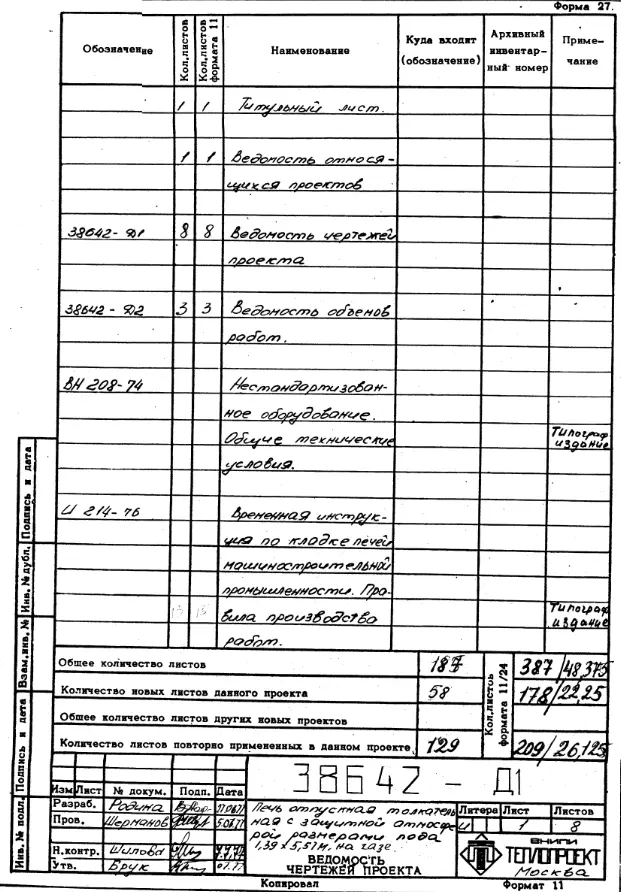 Форма 27.
Обозначение Кол.листов Кол.листов формата 11 Наименование Куда входит (обозначение) Архивный инвентарный номер Примечание
1 1 Титульный лист.
1 1 Ведомость относя-
щихся проектов
38642-Д1 8 8 Ведомость чертежей
проекта
38642-Д2 3 3 Ведомость объемов
работ.
ВН 208-74 Нестандартизован-
ное оборудование.
Общие технические Типограф
условия. издание
И 214-76 Временная инструк-
ция по кладке печей
машиностроительной
промышленности. Пра- Типограф
вила производства издание
работ.
Общее количество листов 187 387/48,375
Количество новых листов данного проекта 58 178/22,25
Общее количество листов других новых проектов
Количество листов повторно примененных в данном проекте. 129 209/26,125
Кол.листов формата 11/24
Инв. № подл. Подпись и дата Взам.инв. № Инв. № дубл. Подпись и дата
38642 - Д1
Изм Лист № докум. Подп. Дата
Разраб. Родина
Пров. Шерманов
Н.контр. Шилова
Утв. Брук
Печь отпускная толкатель
ная с защитной атмосфе
рой размерами пода
1,39 x 5,57м, на газе.
ВЕДОМОСТЬ
ЧЕРТЕЖЕЙ ПРОЕКТА
Литера Лист Листов
И 1 8
ВНИПИ
ТЕПЛОПРОЕКТ
Москва
Копировал Формат 11